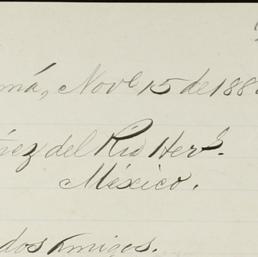 má, Nov.e 15 de 188
ñez del Rio Her.s
México.
dos Amigos.